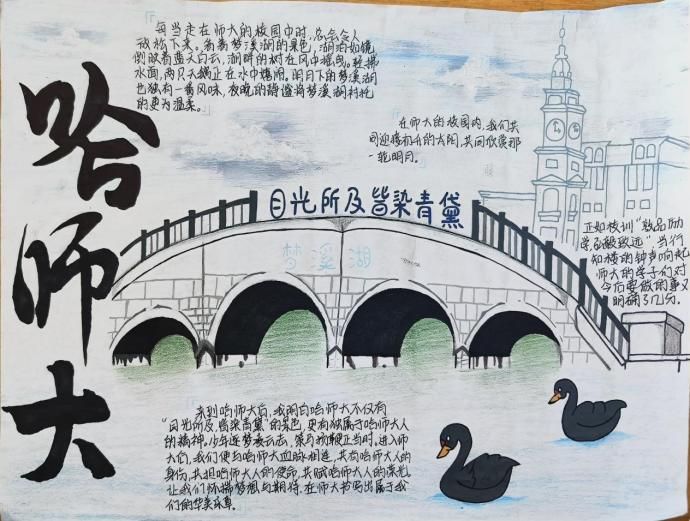 哈师大
每当走在师大的校园中时,总会令人
放松下来。看着梦溪湖的景色,湖泊如镜
倒映着蓝天白云,湖畔的树在风中摇曳。轻拂
水面,两只天鹅正在水中嬉闹。明月下的梦溪湖
也独有一番风味,夜晚的静谧将梦溪湖衬托
的更为温柔。
在师大的校园内,我们共
同迎接初升的太阳,共同欣赏那
一轮明月。
目光所及皆染青黛
梦溪湖
正如校训“敦品励
学,弘毅致远”当行
知楼的钟声响起
师大的学子们对
今后要做的事又
明确了几分。
来到哈师大后,我明白哈师大不仅有
“目光所及,皆染青黛”的景色,更有独属于哈师大人
的精神,少年逐梦凌云志,策马扬鞭正当时,进入师
大后,我们便与哈师大血脉相连,共有哈师大人的
身份,共担哈师大人的使命,共赋哈师大人的荣光
让我们怀揣梦想与期待,在师大书写出属于我
们的华美乐章。